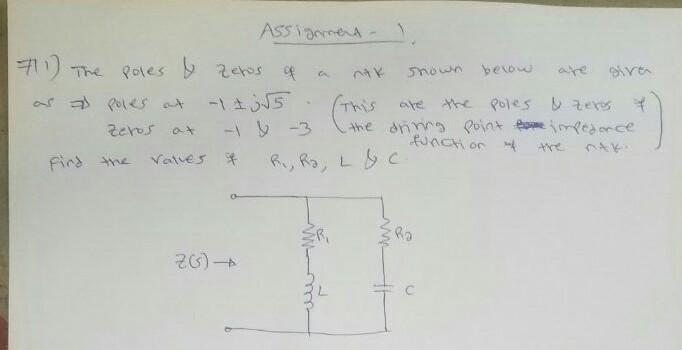 Assignment - 1
#1) The poles & zeros of a ntk shown below are given
as ⇒ poles at -1 ± j√5. (This are the poles & zeros of
zeros at -1 & -3 the driving point impedance
function of the ntk.
Find the values of R₁, R₂, L & C.
R₁
R₂
Z(s) →
L
C